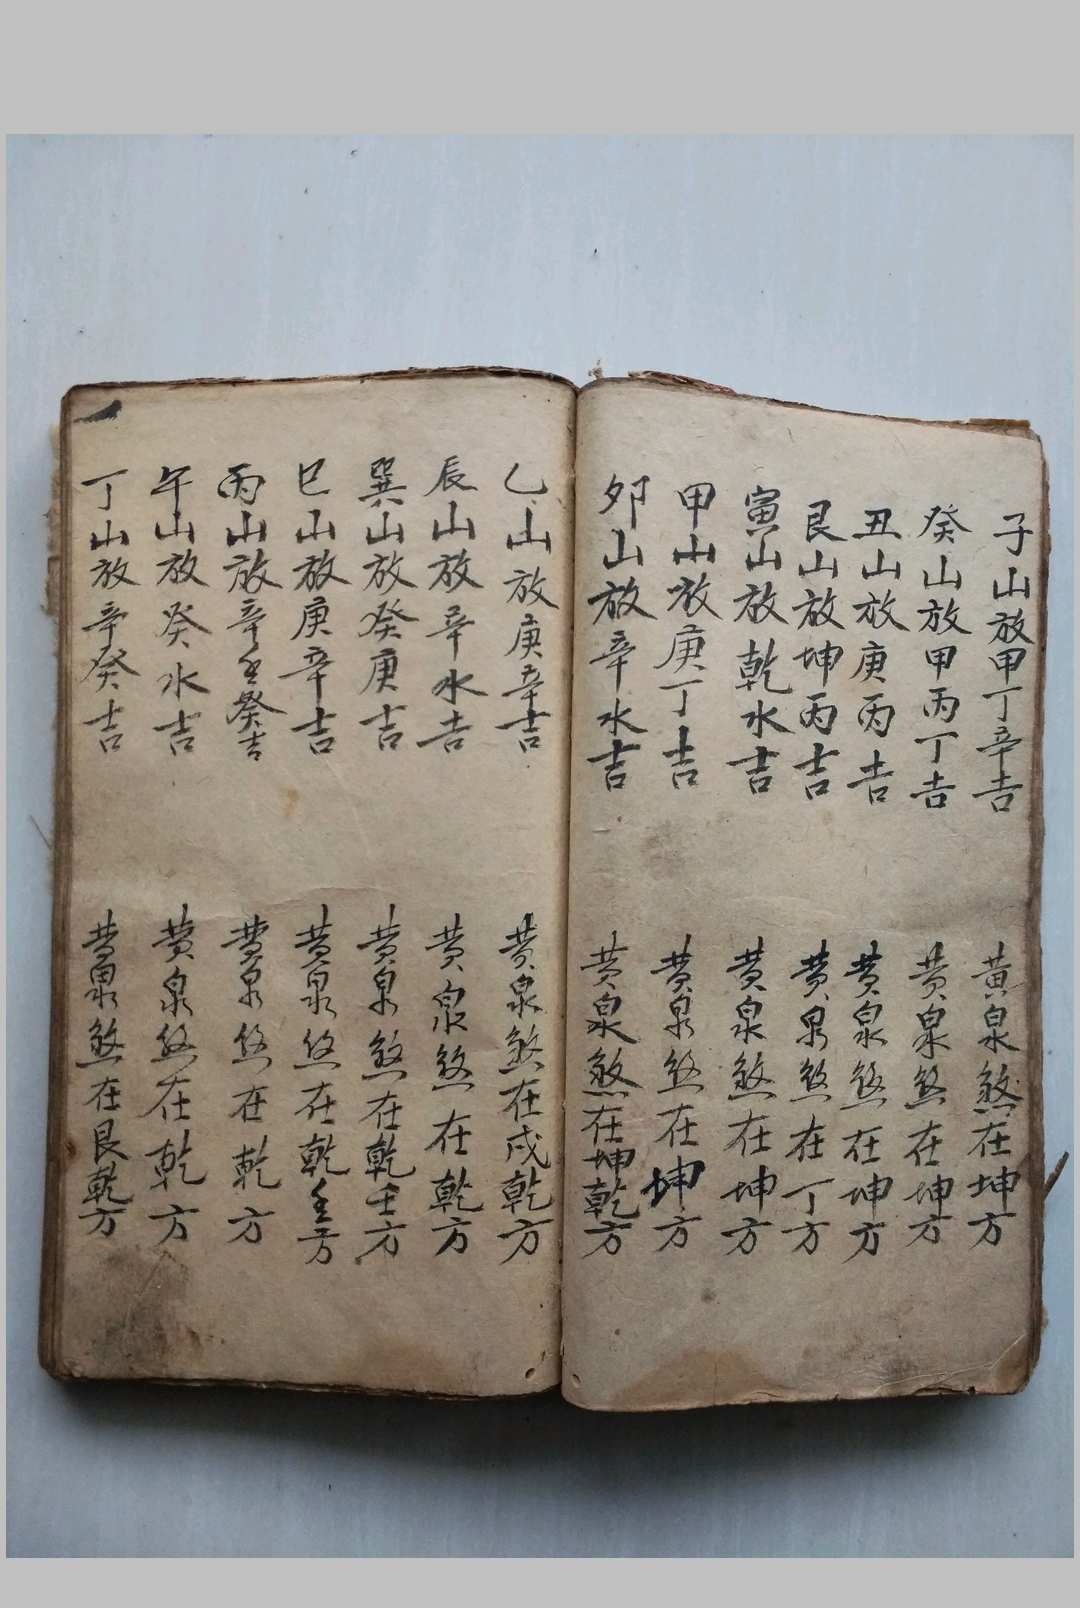 子山放甲丁辛吉
黄泉煞在坤方
癸山放甲丙丁吉
黄泉煞在坤方
丑山放庚丙吉
黄泉煞在坤方
艮山放坤丙吉
黄泉煞在丁方
寅山放乾水吉
黄泉煞在坤方
甲山放庚丁吉
黄泉煞在坤方
卯山放辛水吉
黄泉煞在坤乾方
乙山放庚辛吉
黄泉煞在戌乾方
辰山放辛水吉
黄泉煞在乾方
巽山放癸庚吉
黄泉煞在乾壬方
巳山放庚辛吉
黄泉煞在乾壬方
丙山放辛壬癸吉
黄泉煞在乾方
午山放癸水吉
黄泉煞在乾方
丁山放辛癸吉
黄泉煞在艮乾方